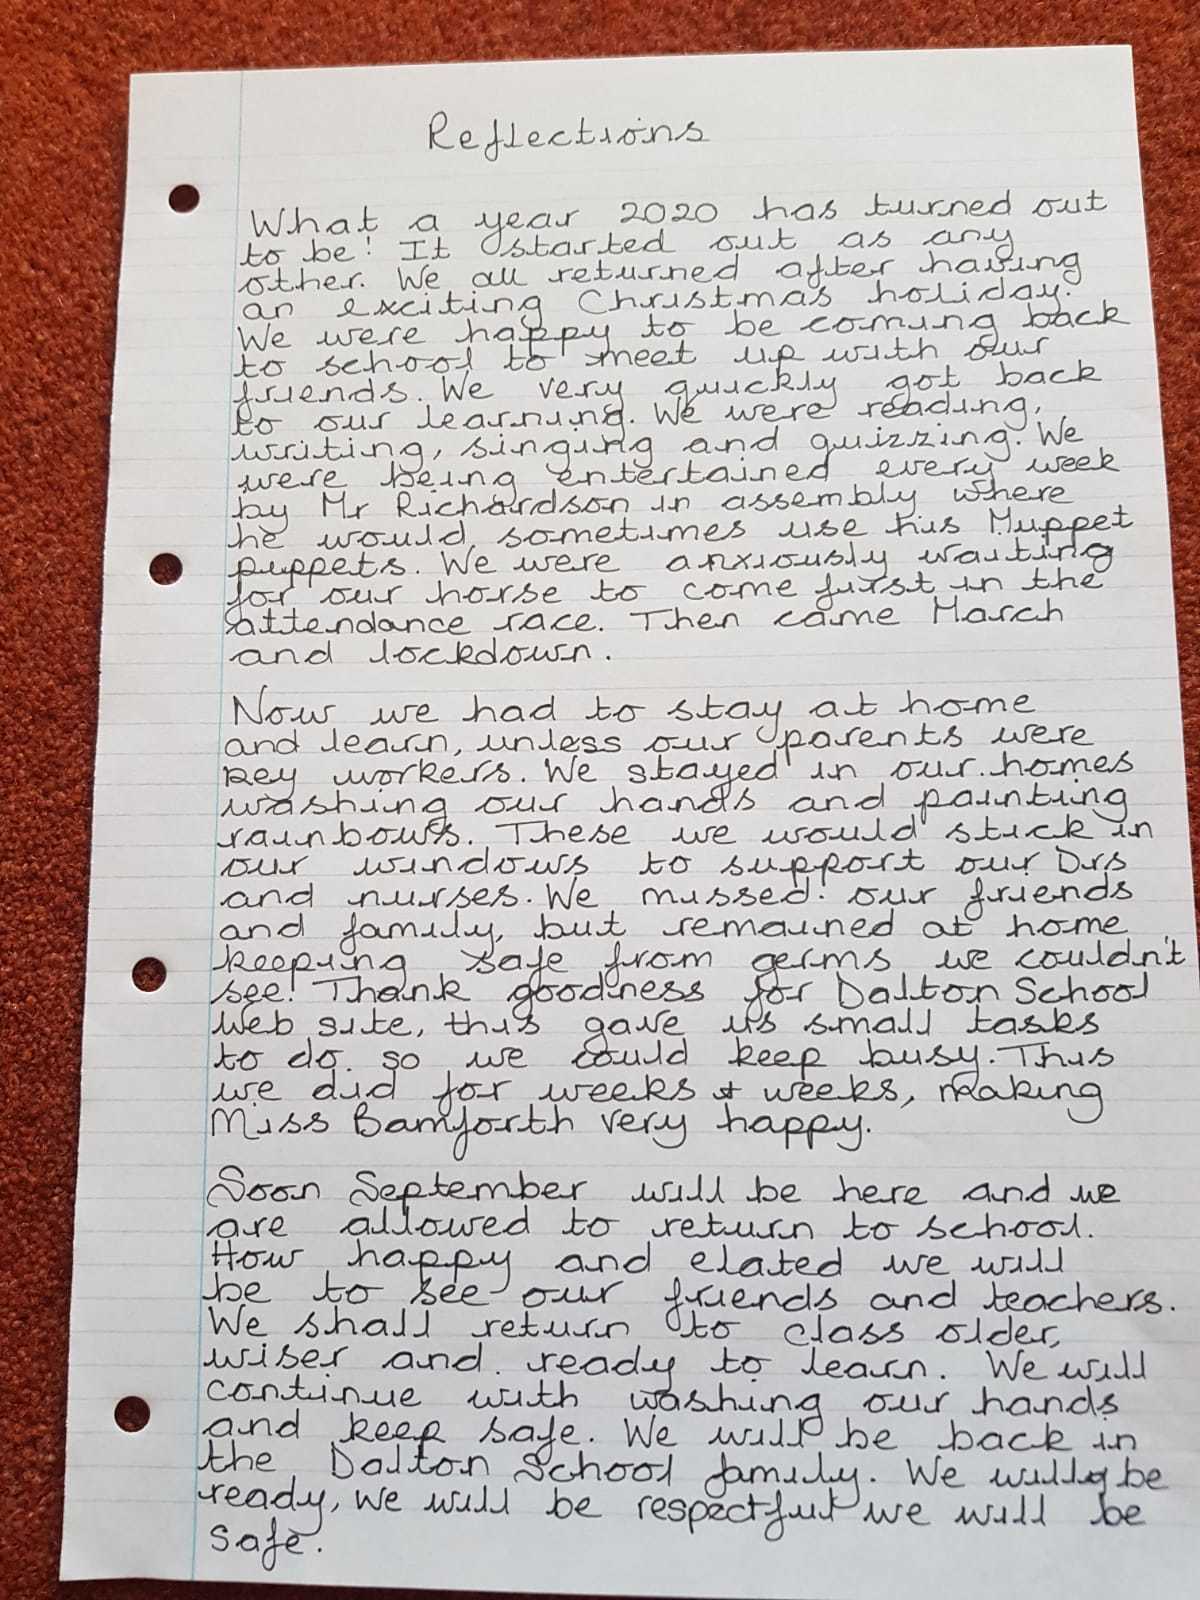 Reflections
What a year 2020 has turned out
to be! It started out as any
other. We all returned after having
an exciting Christmas holiday.
We were happy to be coming back
to school to meet up with our
friends. We very quickly got back
to our learning. We were reading,
writing, singing and quizzing. We
were being entertained every week
by Mr Richardson in assembly where
he would sometimes use his Muppet
puppets. We were anxiously waiting
for our horse to come first in the
attendance race. Then came March
and lockdown.
Now we had to stay at home
and learn, unless our parents were
key workers. We stayed in our homes
washing our hands and painting
rainbows. These we would stick in
our windows to support our Drs
and nurses. We missed our friends
and family, but remained at home
keeping safe from germs we couldn't
see! Thank goodness for Dalton School
web site, this gave us small tasks
to do so we could keep busy. This
we did for weeks & weeks, making
Miss Bamforth very happy.
Soon September will be here and we
are allowed to return to school.
How happy and elated we will
be to see our friends and teachers.
We shall return to class older,
wiser and ready to learn. We will
continue with washing our hands
and keep safe. We will be back in
the Dalton School family. We will be
ready, we will be respectful we will be
safe.